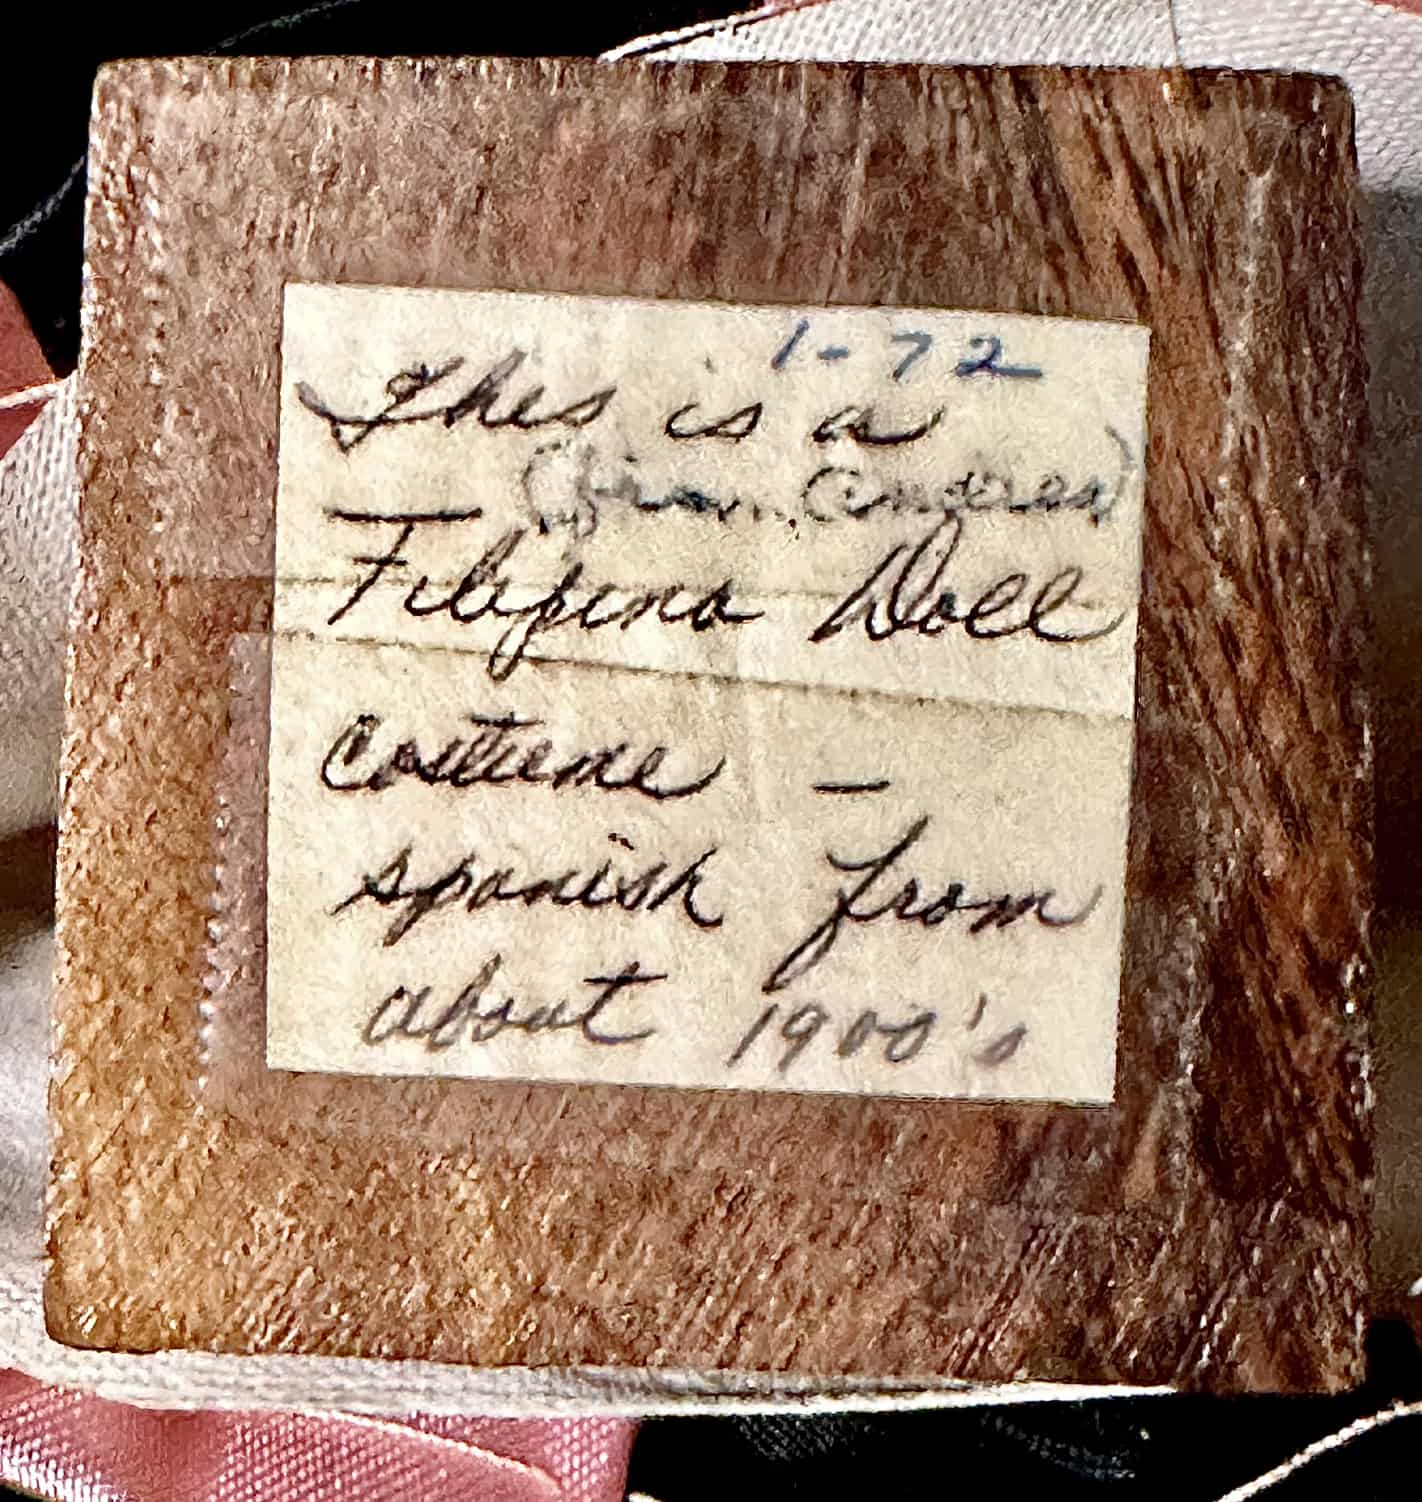 1-72
This is a
(from Andrea)
Filipino Doll
Costume –
spanish from
about 1900's